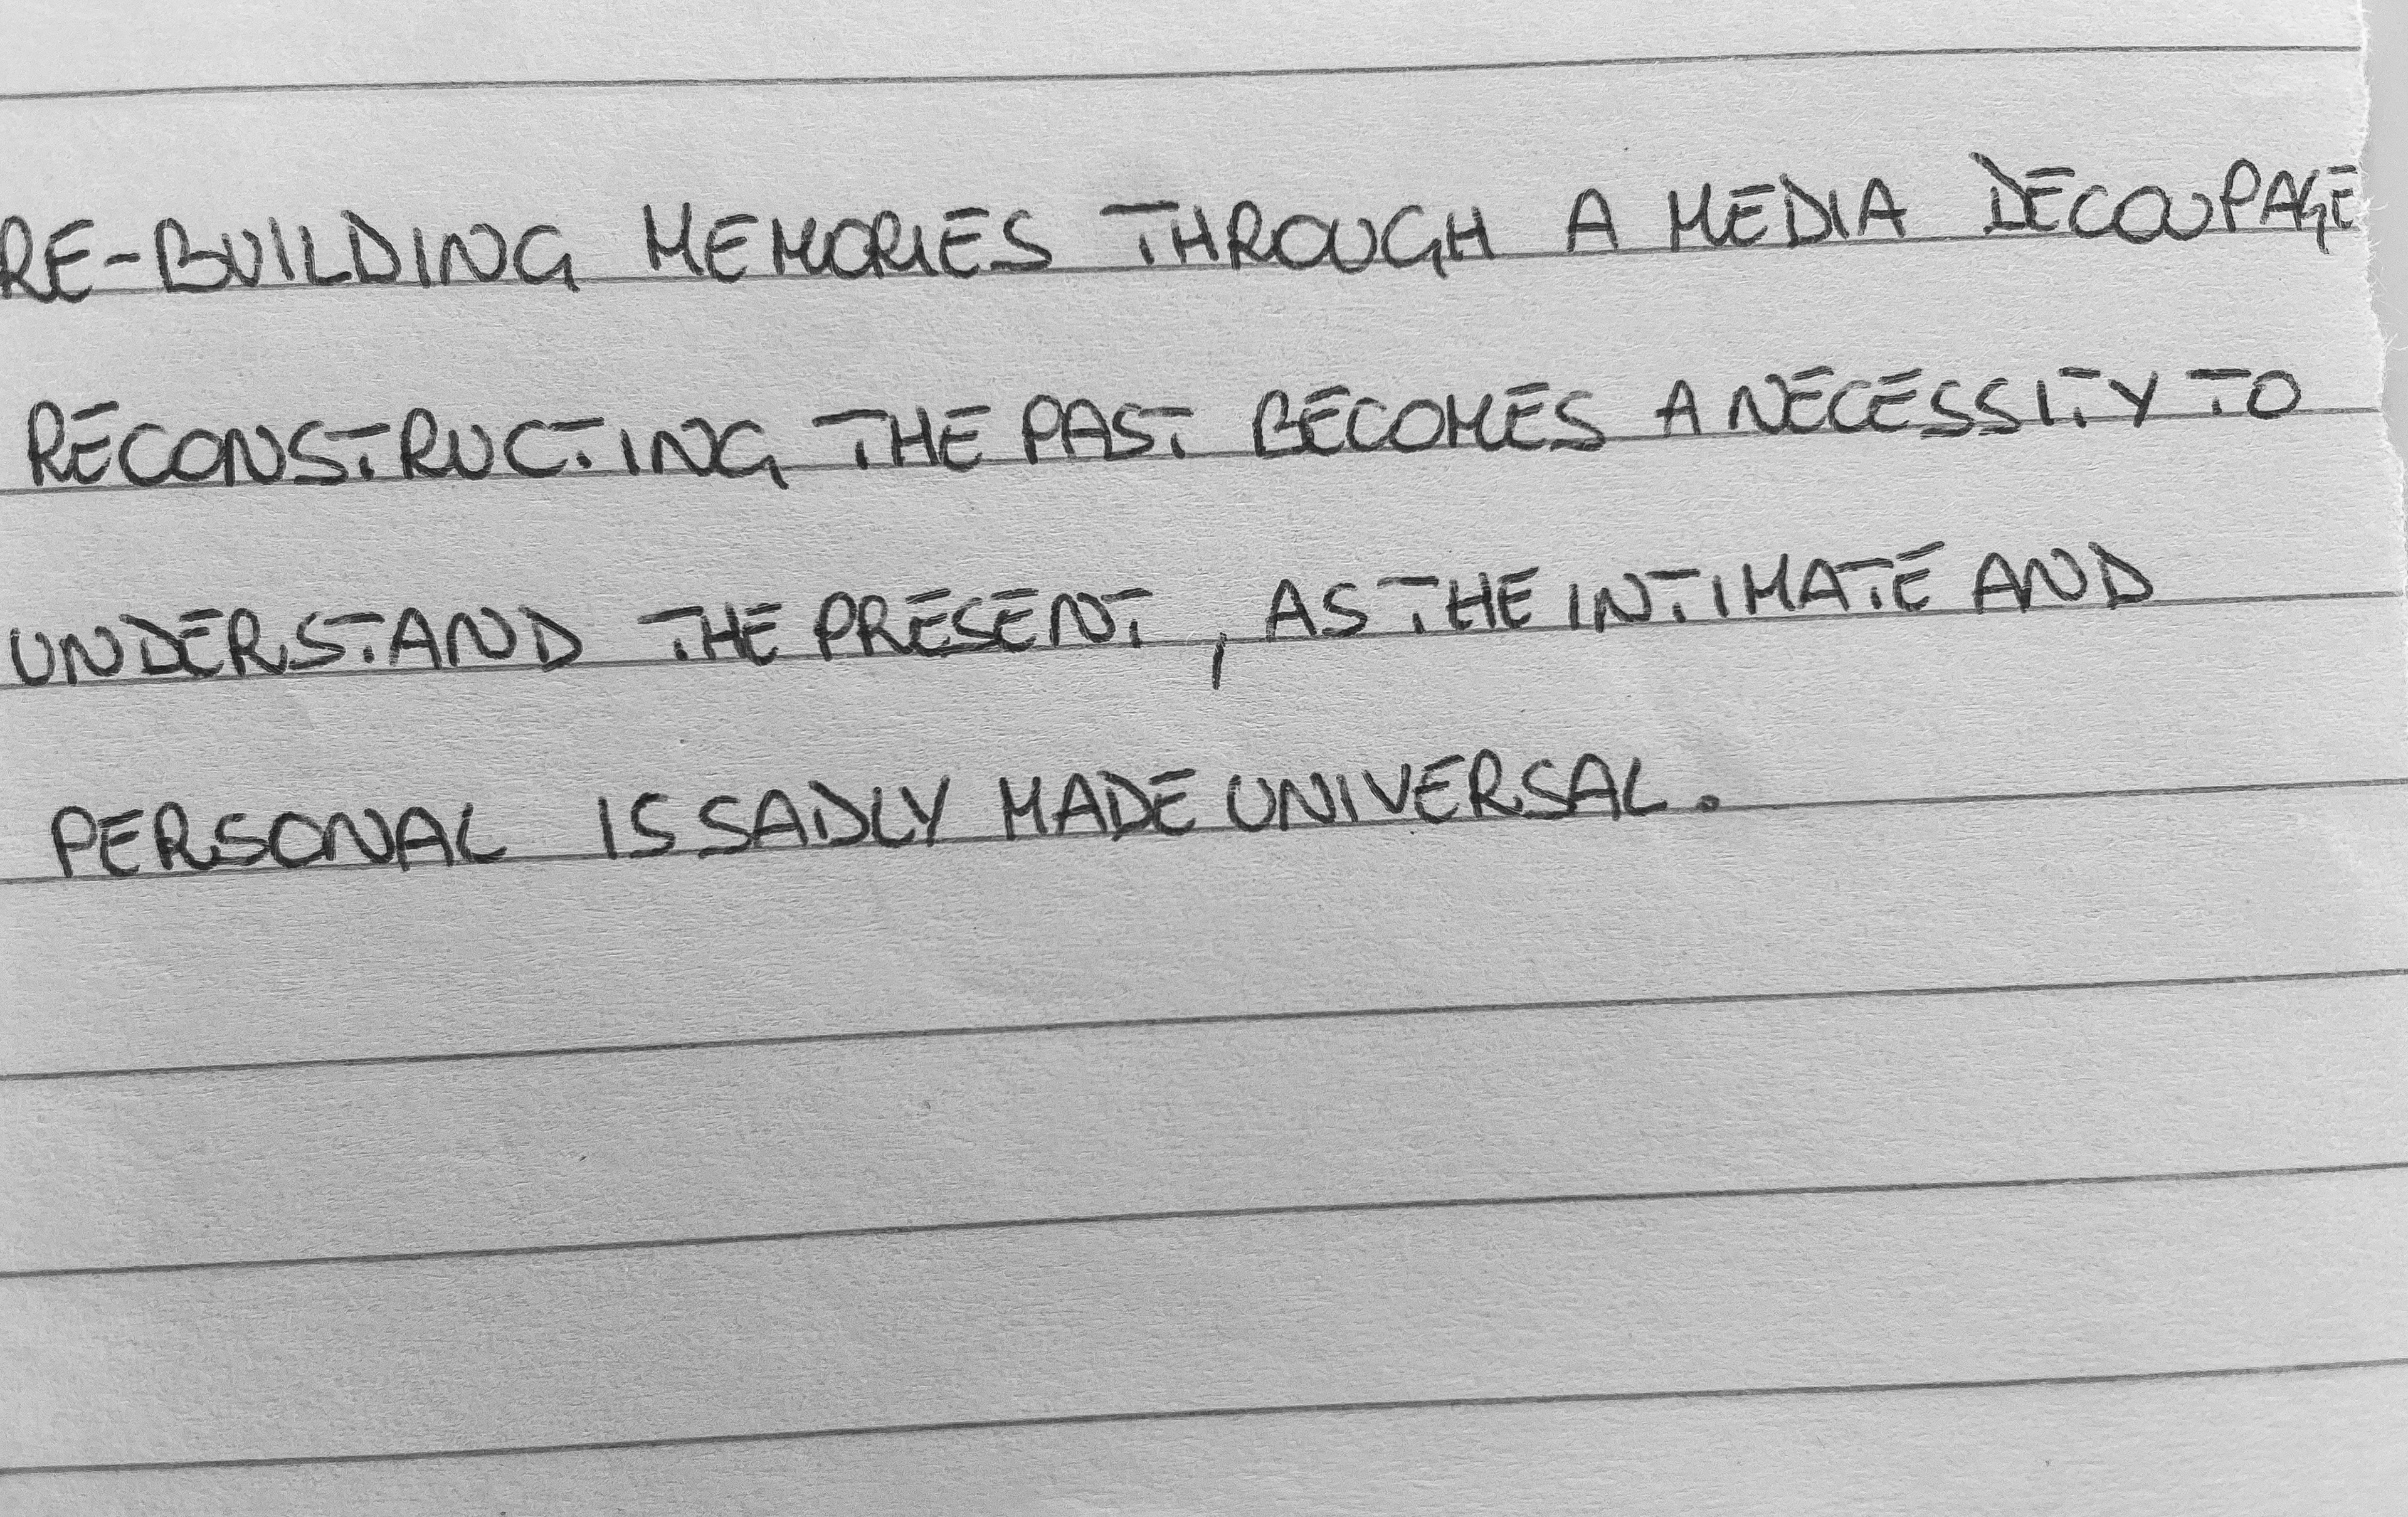 RE-BUILDING MEMORIES THROUGH A MEDIA DECOUPAGE
RECONSTRUCTING THE PAST BECOMES A NECESSITY TO
UNDERSTAND THE PRESENT, AS THE INTIMATE AND
PERSONAL IS SADLY MADE UNIVERSAL.